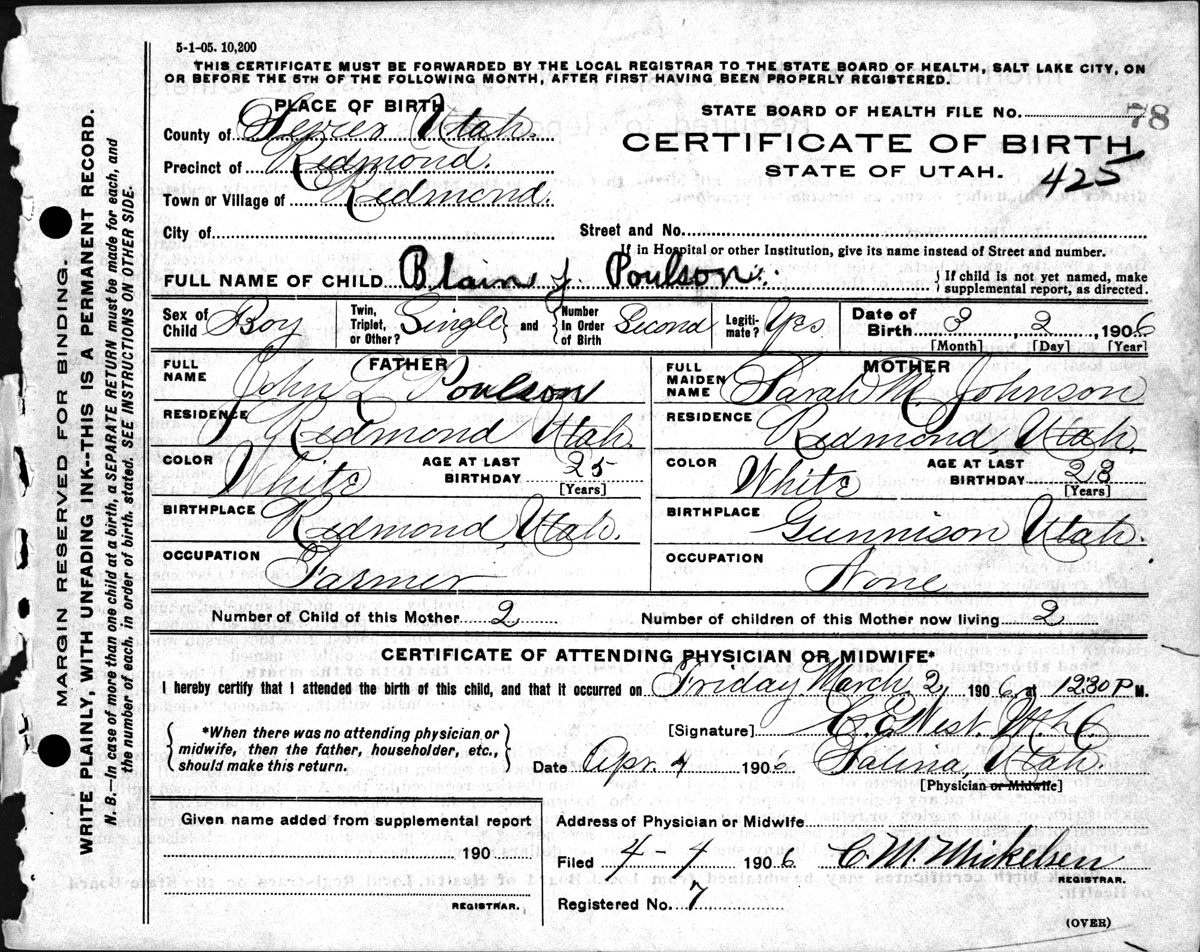 5-1-05. 10,200
THIS CERTIFICATE MUST BE FORWARDED BY THE LOCAL REGISTRAR TO THE STATE BOARD OF HEALTH, SALT LAKE CITY, ON
OR BEFORE THE 5TH OF THE FOLLOWING MONTH, AFTER FIRST HAVING BEEN PROPERLY REGISTERED.
PLACE OF BIRTH
STATE BOARD OF HEALTH FILE No. 78
County of Sevier Utah
CERTIFICATE OF BIRTH
Precinct of Redmond.
STATE OF UTAH. 425
Town or Village of Redmond.
City of
Street and No.
If in Hospital or other Institution, give its name instead of Street and number.
FULL NAME OF CHILD Blain J. Poulson.
{If child is not yet named, make
supplemental report, as directed.
Sex of Child Boy
Twin, Triplet, or Other? Single} and {Number In Order of Birth Second
Legitimate? Yes
Date of Birth 3 , 2 , 1906
[Month] [Day] [Year]
FATHER
FULL NAME John L Poulson
MOTHER
FULL MAIDEN NAME Sarah M. Johnson
RESIDENCE Redmond Utah.
RESIDENCE Redmond, Utah.
COLOR White AGE AT LAST BIRTHDAY 25 [Years]
COLOR White AGE AT LAST BIRTHDAY 23 [Years]
BIRTHPLACE Redmond Utah.
BIRTHPLACE Gunnison Utah.
OCCUPATION Farmer
OCCUPATION None
Number of Child of this Mother 2
Number of children of this Mother now living 2
CERTIFICATE OF ATTENDING PHYSICIAN OR MIDWIFE*
I hereby certify that I attended the birth of this child, and that it occurred on Friday March 2, 1906, at 12:30 P M.
[Signature] C. E. West.
{*When there was no attending physician or
midwife, then the father, householder, etc.,
should make this return.}
Date Apr. 4 1906 Salina, Utah.
[Physician or Midwife]
Given name added from supplemental report
190
REGISTRAR.
Address of Physician or Midwife
Filed 4-4 1906 C. M. Mickelsen
REGISTRAR.
Registered No. 7
(OVER)
MARGIN RESERVED FOR BINDING.
WRITE PLAINLY, WITH UNFADING INK--THIS IS A PERMANENT RECORD.
N. B.—In case of more than one child at a birth, a SEPARATE RETURN must be made for each, and
the number of each, in order of birth, stated. SEE INSTRUCTIONS ON OTHER SIDE.